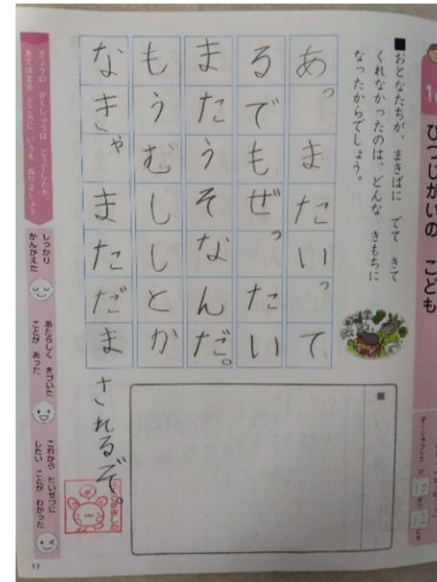 ひつじがいの こども
10
12
■おとなたちが、まきばに でて きて
くれなかったのは、どんな きもちに
なったからでしょう。
あっまたいって
るでもぜったい
またうそなんだ。
もうむししとか
なきゃまただま
されるぞ。
きょうの がくしゅうは どうでしたか。
あてはまる ところに いろを ぬりましょう。
しっかり
かんがえた
あたらしく きづいた
ことが あった
これから たいせつに
したい ことが わかった
17